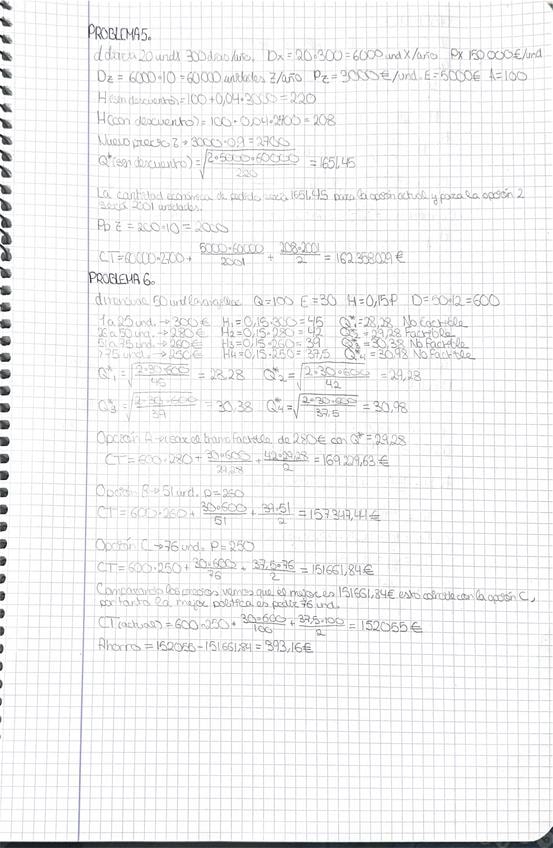 PROBLEMA 5.
d diaria 20 unds 300 dias/año. Dx = 20·300 = 6000 und X/año Px 150000€/und
Dz = 6000·10 = 60000 unidades Z/año Pz = 3000€/und. E = 5000€ A=100
H(sin descuento) = 100 + 0,04·3000 = 220
H(con descuento) = 100 + 0,04·2700 = 208
Nuevo precio Z → 3000·0,9 = 2700
Q*(sin descuento) = √(2·5000·60000 / 220) = 1651,45
La cantidad económica de pedido será 1651,45 para la opción actual y para la opción 2
será 2001 unidades.
Pb Z = 200·10 = 2000
CT = 60000·2700 + 5000·60000/2001 + 208·2001/2 = 162358029€
PROBLEMA 6.
d mensual 50 und Q=100 E=30 H=0,15P D=50·12=600
1 a 25 und. → 300€ H1=0,15·300=45 Q1*=28,28 No Factible
26 a 50 und. → 280€ H2=0,15·280=42 Q2*=29,28 Factible
51 a 75 und. → 260€ H3=0,15·260=39 Q3*=30,38 No Factible
>75 und. → 250€ H4=0,15·250=37,5 Q4*=30,98 No Factible
Q1* = √(2·30·600 / 45) = 28,28 Q2* = √(2·30·600 / 42) = 29,28
Q3* = √(2·30·600 / 39) = 30,38 Q4* = √(2·30·600 / 37,5) = 30,98
Opción A → es el tramo factible de 280€ con Q*=29,28
CT = 600·280 + 30·600/29,28 + 42·29,28/2 = 169229,63€
Opción B → 51 und. P=260
CT = 600·260 + 30·600/51 + 39·51/2 = 157347,44€
Opción C → 76 und. P=250
CT = 600·250 + 30·600/76 + 37,5·76/2 = 151661,84€
Comparando los precios vemos que el mejor es 151661,84€ esto coincide con la opción C,
por tanto la mejor política es pedir 76 und.
CT(actual) = 600·250 + 30·600/100 + 37,5·100/2 = 152055€
Ahorro = 152055 - 151661,84 = 393,16€